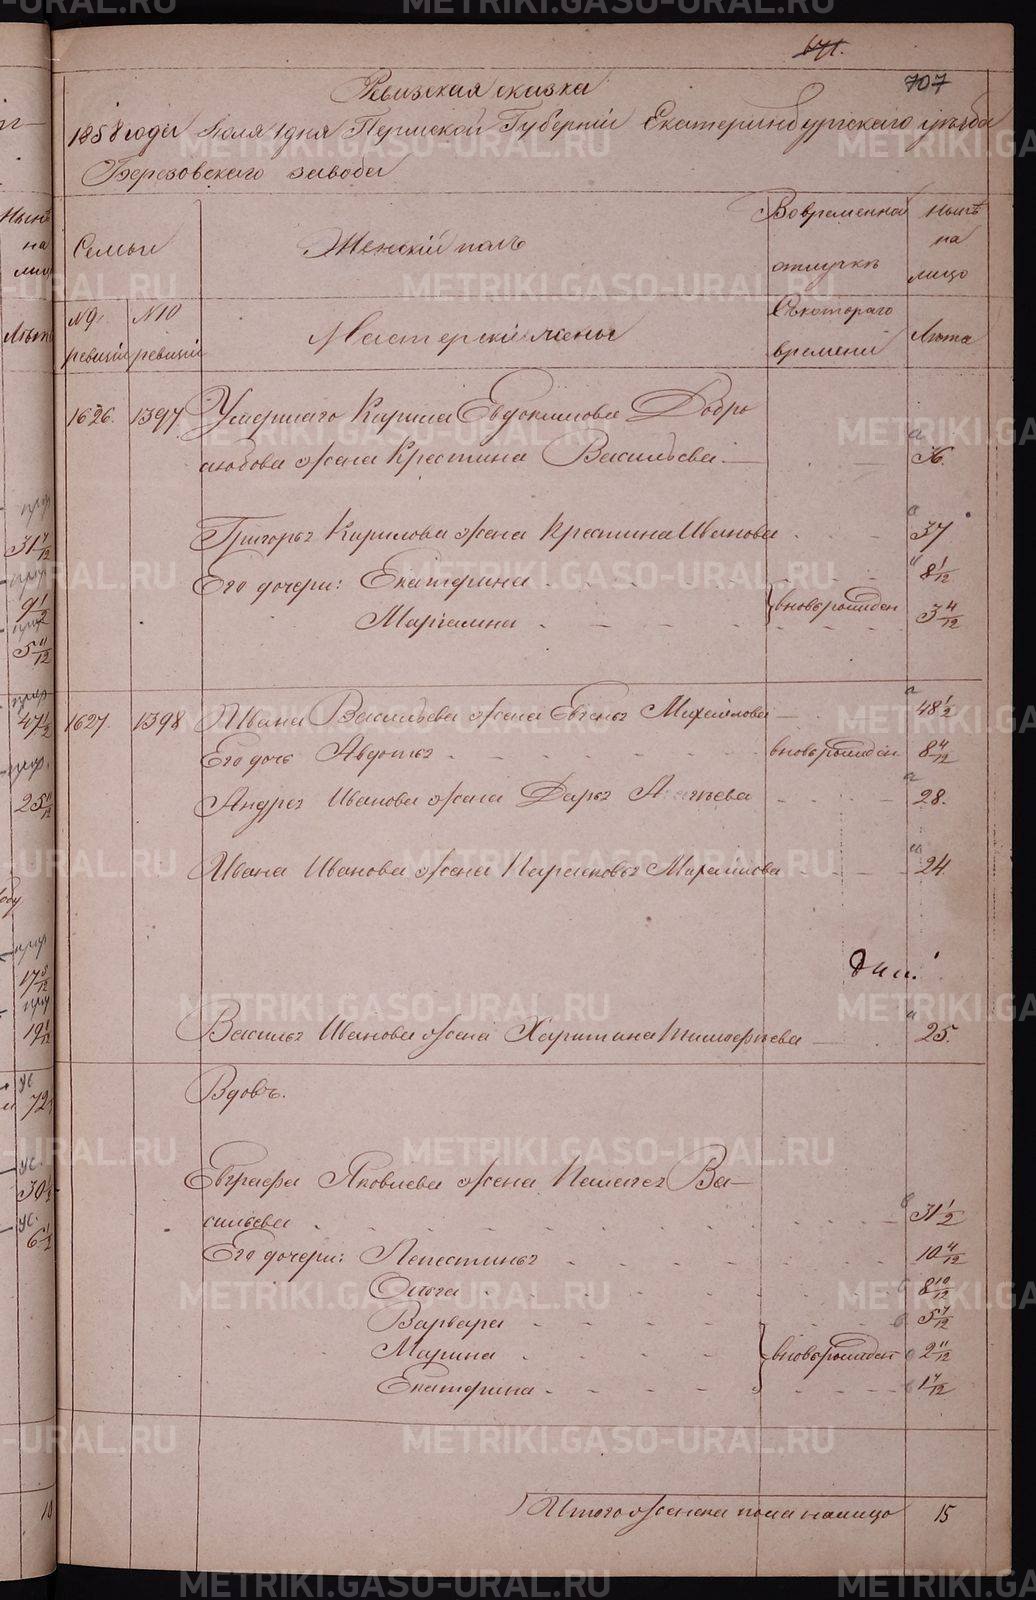 671.
707
Ревизская сказка
1858 года Июля 1 дня Пермской Губернiи Екатеринбургскаго уѣзда
Березовскаго завода
Семьи
Женскiй полъ
Во временной отлучкѣ
Нынѣ на лицо
№ 9. ревизiи
№ 10 ревизiи
Мастерскiя жены
Съ котораго времени
Лѣта
1626. 1397 Умершаго Кирила Евдокимова Добро
любова жена Крестина Васильева — 76.
Григорья Кирилова жена Крестина Иванова 37
Его дочери: Екатерина 8 1/12
Маргалина } вновь рожден 3 4/12
1627. 1398 Ивана Васильева жена Евгенья Михайлова 48 1/2
Его дочь Авдотья вновь рожден 8 4/12
Андрея Иванова жена Дарья 28.
Ивана Иванова жена Парасковья Михайлова 24
Василья Иванова жена Харитина Тимофѣева 25.
Вдовъ.
Евграфа Яковлева жена Пелагея Ва-
сильева 31 1/2
Его дочери: Лепестинья 10 4/12
Ольга 8 10/12
Варвара 5 7/12
Марина } вновь рожден 2 11/12
Екатерина 1 7/12
Итого женска пола налицо 15
METRIKI.GASO-URAL.RU